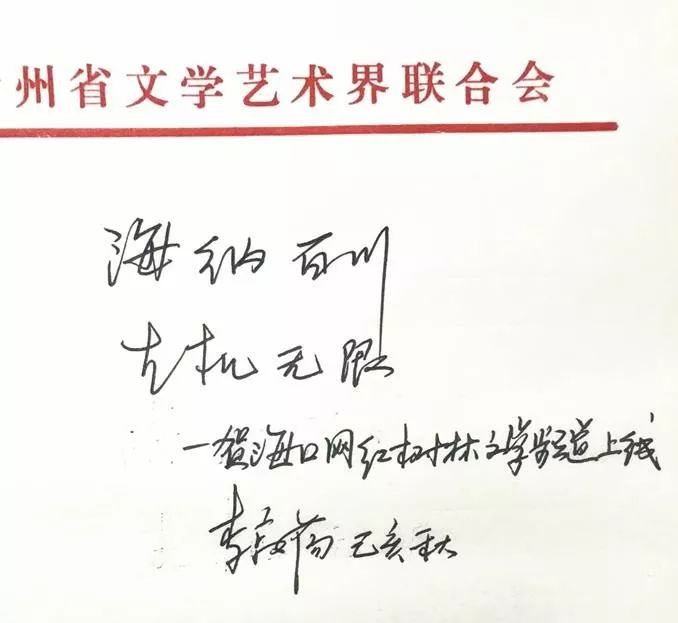 州省文学艺术界联合会
海纳百川
生机无限
—贺海口网红树林文学频道上线
李寂荡 己亥秋